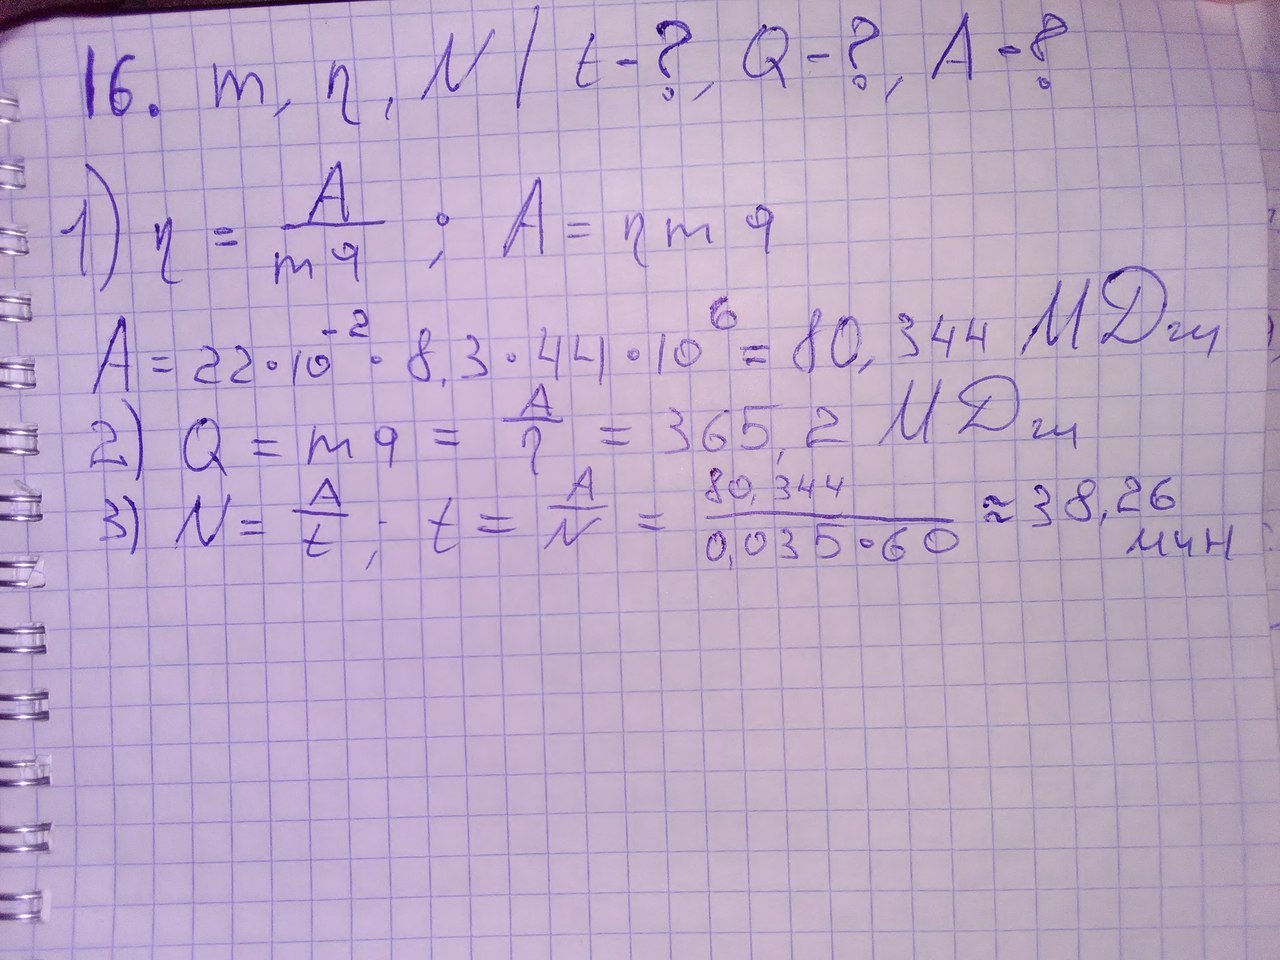 16. m, η, N / t-?, Q-?, A-?
1) η = A/mq ; A = ηmq
A = 22·10⁻²·8,3·44·10⁶ = 80,344 МДж
2) Q = mq = A/η = 365,2 МДж
3) N = A/t ; t = A/N = 80,344/0,035·60 ≈ 38,26 мин